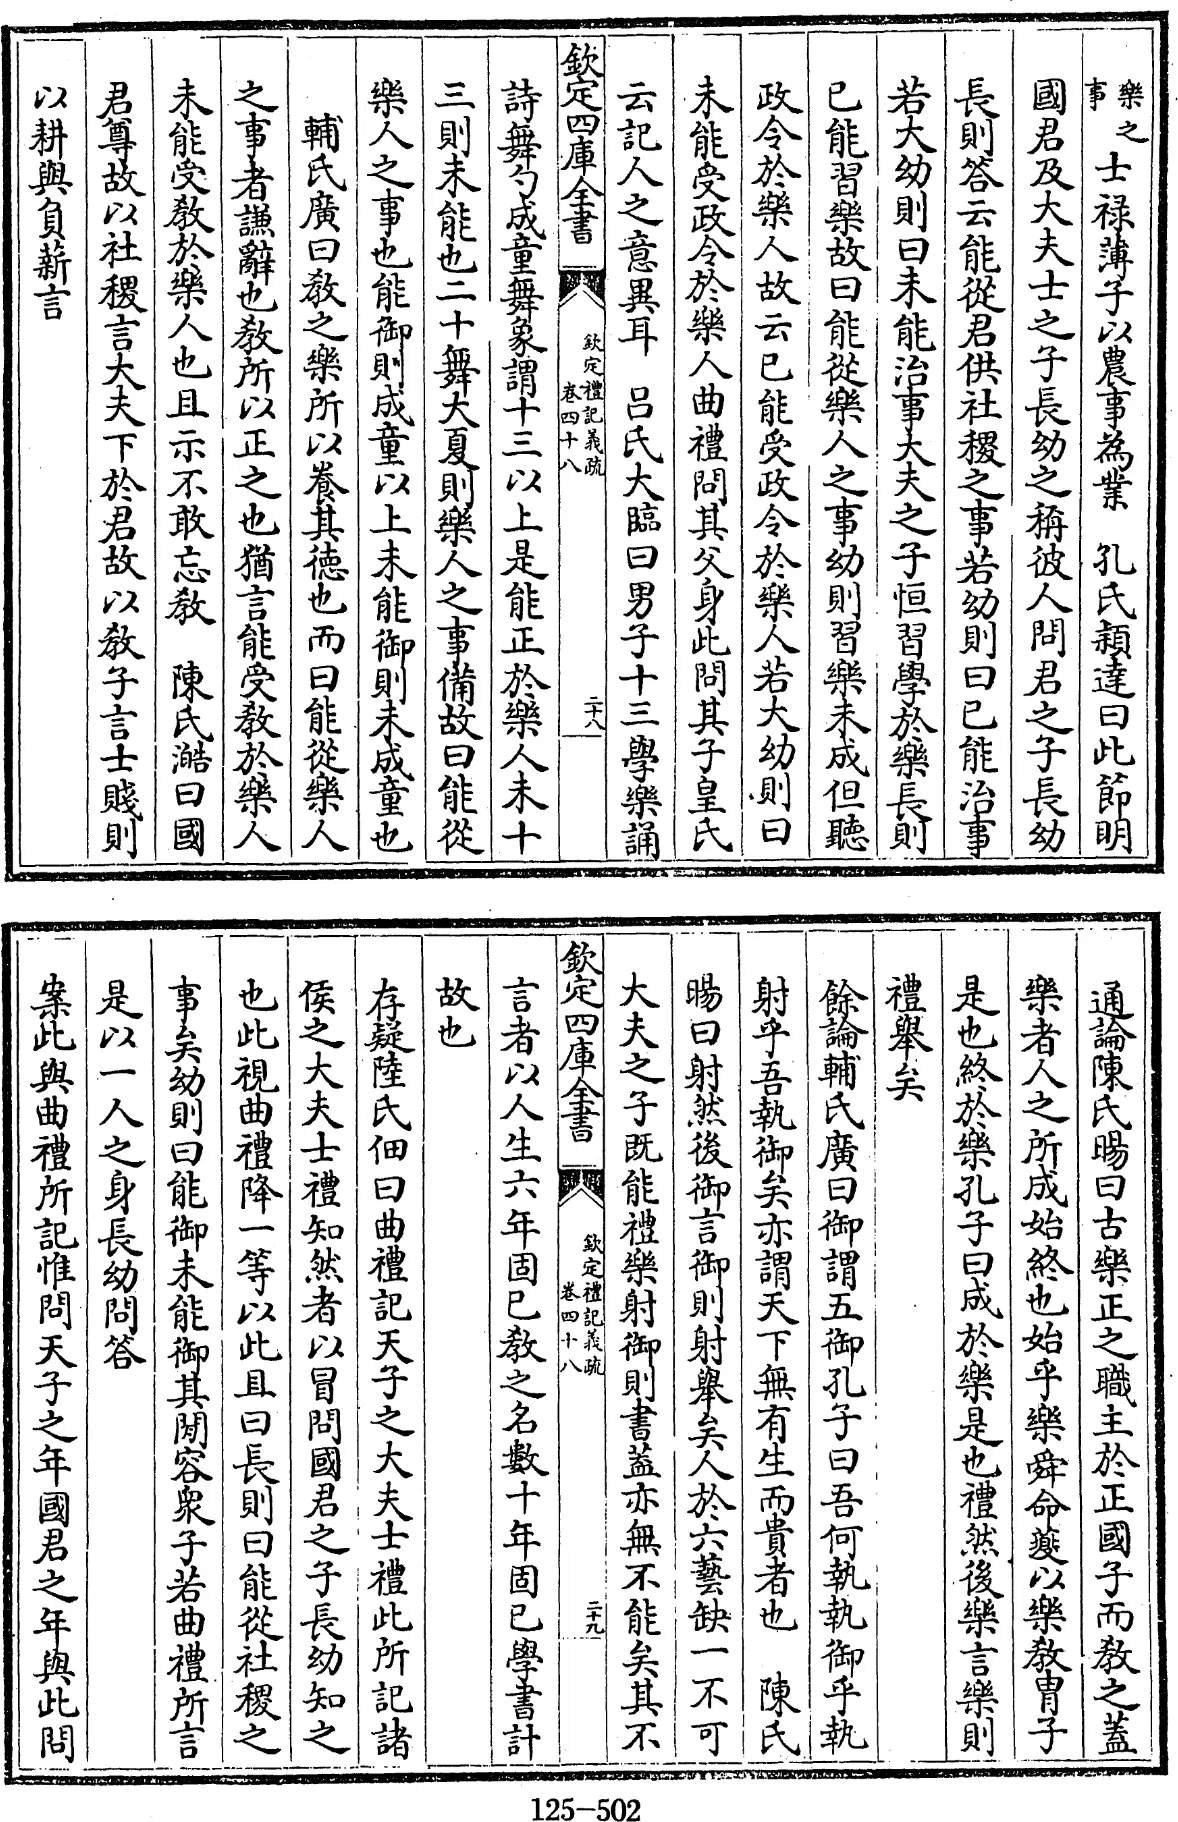 樂之事士禄薄子以農事為業　孔氏穎達曰此節明
國君及大夫士之子長幼之稱彼人問君之子長幼
長則答云能從君供社稷之事若幼則曰已能治事
若大幼則曰未能治事大夫之子恒習學於樂長則
已能習樂故曰能從樂人之事幼則習樂未成但聽
政令於樂人故云已能受政令於樂人若大幼則曰
未能受政令於樂人曲禮問其父身此問其子皇氏
云記人之意異耳　呂氏大臨曰男子十三學樂誦
欽定四庫全書
欽定禮記義疏
卷四十八
二十八
詩舞勺成童舞象謂十三以上是能正於樂人未十
三則未能也二十舞大夏則樂人之事備故曰能從
樂人之事也能御則成童以上未能御則未成童也
輔氏廣曰教之樂所以養其徳也而曰能從樂人
之事者謙辭也教所以正之也猶言能受教於樂人
未能受教於樂人也且示不敢忘教　陳氏澔曰國
君尊故以社稷言大夫下於君故以教子言士賤則
以耕與負薪言
通論陳氏暘曰古樂正之職主於正國子而教之蓋
樂者人之所成始終也始乎樂舜命夔以樂教胄子
是也終於樂孔子曰成於樂是也禮然後樂言樂則
禮舉矣
餘論輔氏廣曰御謂五御孔子曰吾何執執御乎執
射乎吾執御矣亦謂天下無有生而貴者也　陳氏
暘曰射然後御言御則射舉矣人於六藝缺一不可
大夫之子既能禮樂射御則書葢亦無不能矣其不
欽定四庫全書
欽定禮記義疏
卷四十八
二十九
言者以人生六年固已教之名數十年固已學書計
故也
存疑陸氏佃曰曲禮記天子之大夫士禮此所記諸
侯之大夫士禮知然者以冒問國君之子長幼知之
也此視曲禮降一等以此且曰長則曰能從社稷之
事矣幼則曰能御未能御其閒容衆子若曲禮所言
是以一人之身長幼問答
案此與曲禮所記惟問天子之年國君之年與此問
125-502